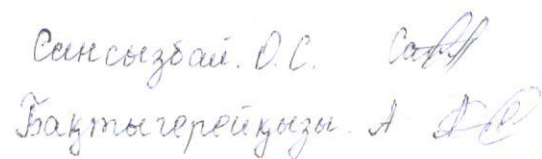 Сансызбай. О.С.
Бақтыгерейқызы. А